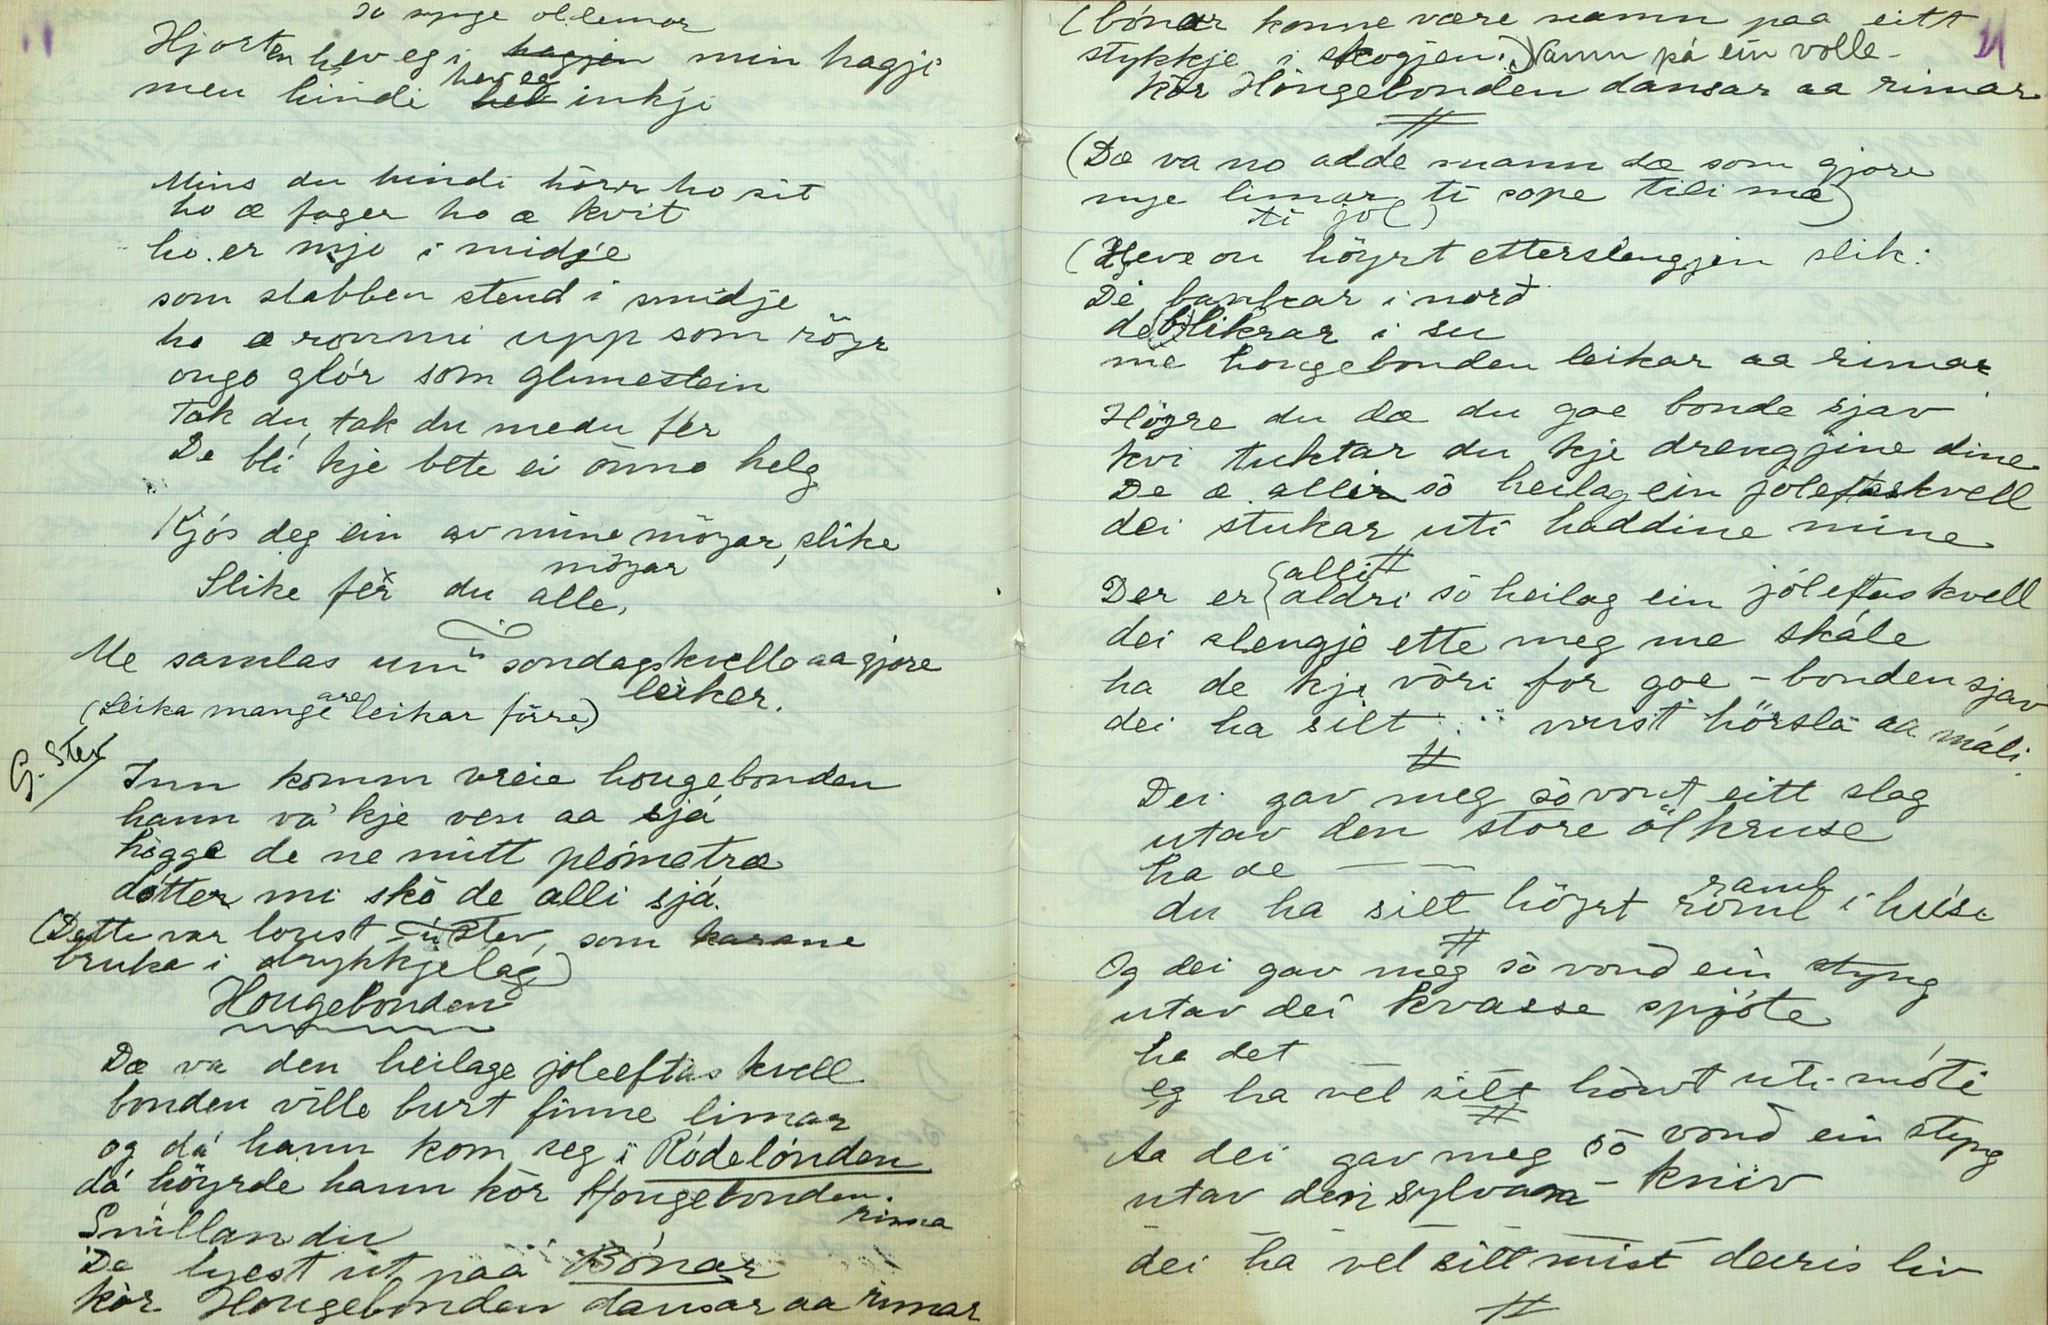 så synge ollemor
Hjorten hev eg i hagjen min hagji
men hindi hev eg hel inkji
Mins du hindi hörr ho sit
ho æ fager ho æ kvit
ho er mjo i midje
som stabben stend i smidje
ho æ ronni upp som röyr
ongo glór som glimestein
Tak du, tak du medu fér
De bli kje bete ei önno helg
Kjós deg ein av mine möyar, slike
möyar
Slike fér du alle.
Me samlas um söndagskvello aa gjore
leiker.
(Leika mange are leikar förre)
G. Stev
Inn komm vreie hougebonden
hann va kje ven aa sjá
högge de ne mitt plómetræ
dótter mi skò de alli sjá.
(Dette var loust i stev, som karane
bruka i drykkjelag)
Hougebonden
Dæ va den heilage joleeftas kvell
bonden ville burt finne limar
og dá hann kom seg i Ródelónden
dá höyrde hann kòr Hougebonden
rima
Snillan du
De lyest ut paa Bónar
kòr Hougebonden dansar aa rimar
21
(bónar konne være namn paa eitt
stykkje i skogjen.) Namn på ein volle
kòr Hougebonden dansar aa rimar
(Dæ va no adde mann dæ som gjore
mye limar ti sope tili mæ)
ti jol)
(Heve ou höyrt etterslengjen slik:
De bankar i nord
de blikrar i su
me hougebonden leikar aa rimar
Höyre du dæ du goe bonde sjav
kvi tuktar du kje drengjine dine
De æ alli sò heilag ein joleftaskvell
dei stukar uti haddine mine
Der er (alli
aldri sò heilag ein jóleftaskvell
dei slengje ette meg me skále
ha de kje vòri for goe-bonden sjav
dei ha silt .. .. must hörsla aa máli.
Dei gav meg sò vont eitt slag
utav den store ölkruse
ha de — —
du ha silt höyrt ramb
romb i húse
Og dei gav meg sò vond ein styng
utav dei kvasse spjóte
ha det
eg ha vel silt hòvt uti móti
Aa dei gav meg sò vond ein styng
utav den sylvan-kniv
— — —
dei ha vel silt mist deiris liv